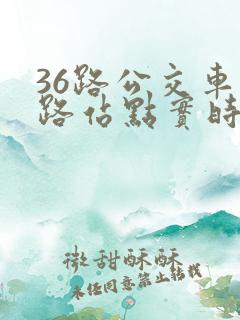 36路公交車
路佔點實時
微甜酥酥
未经同意禁止转载